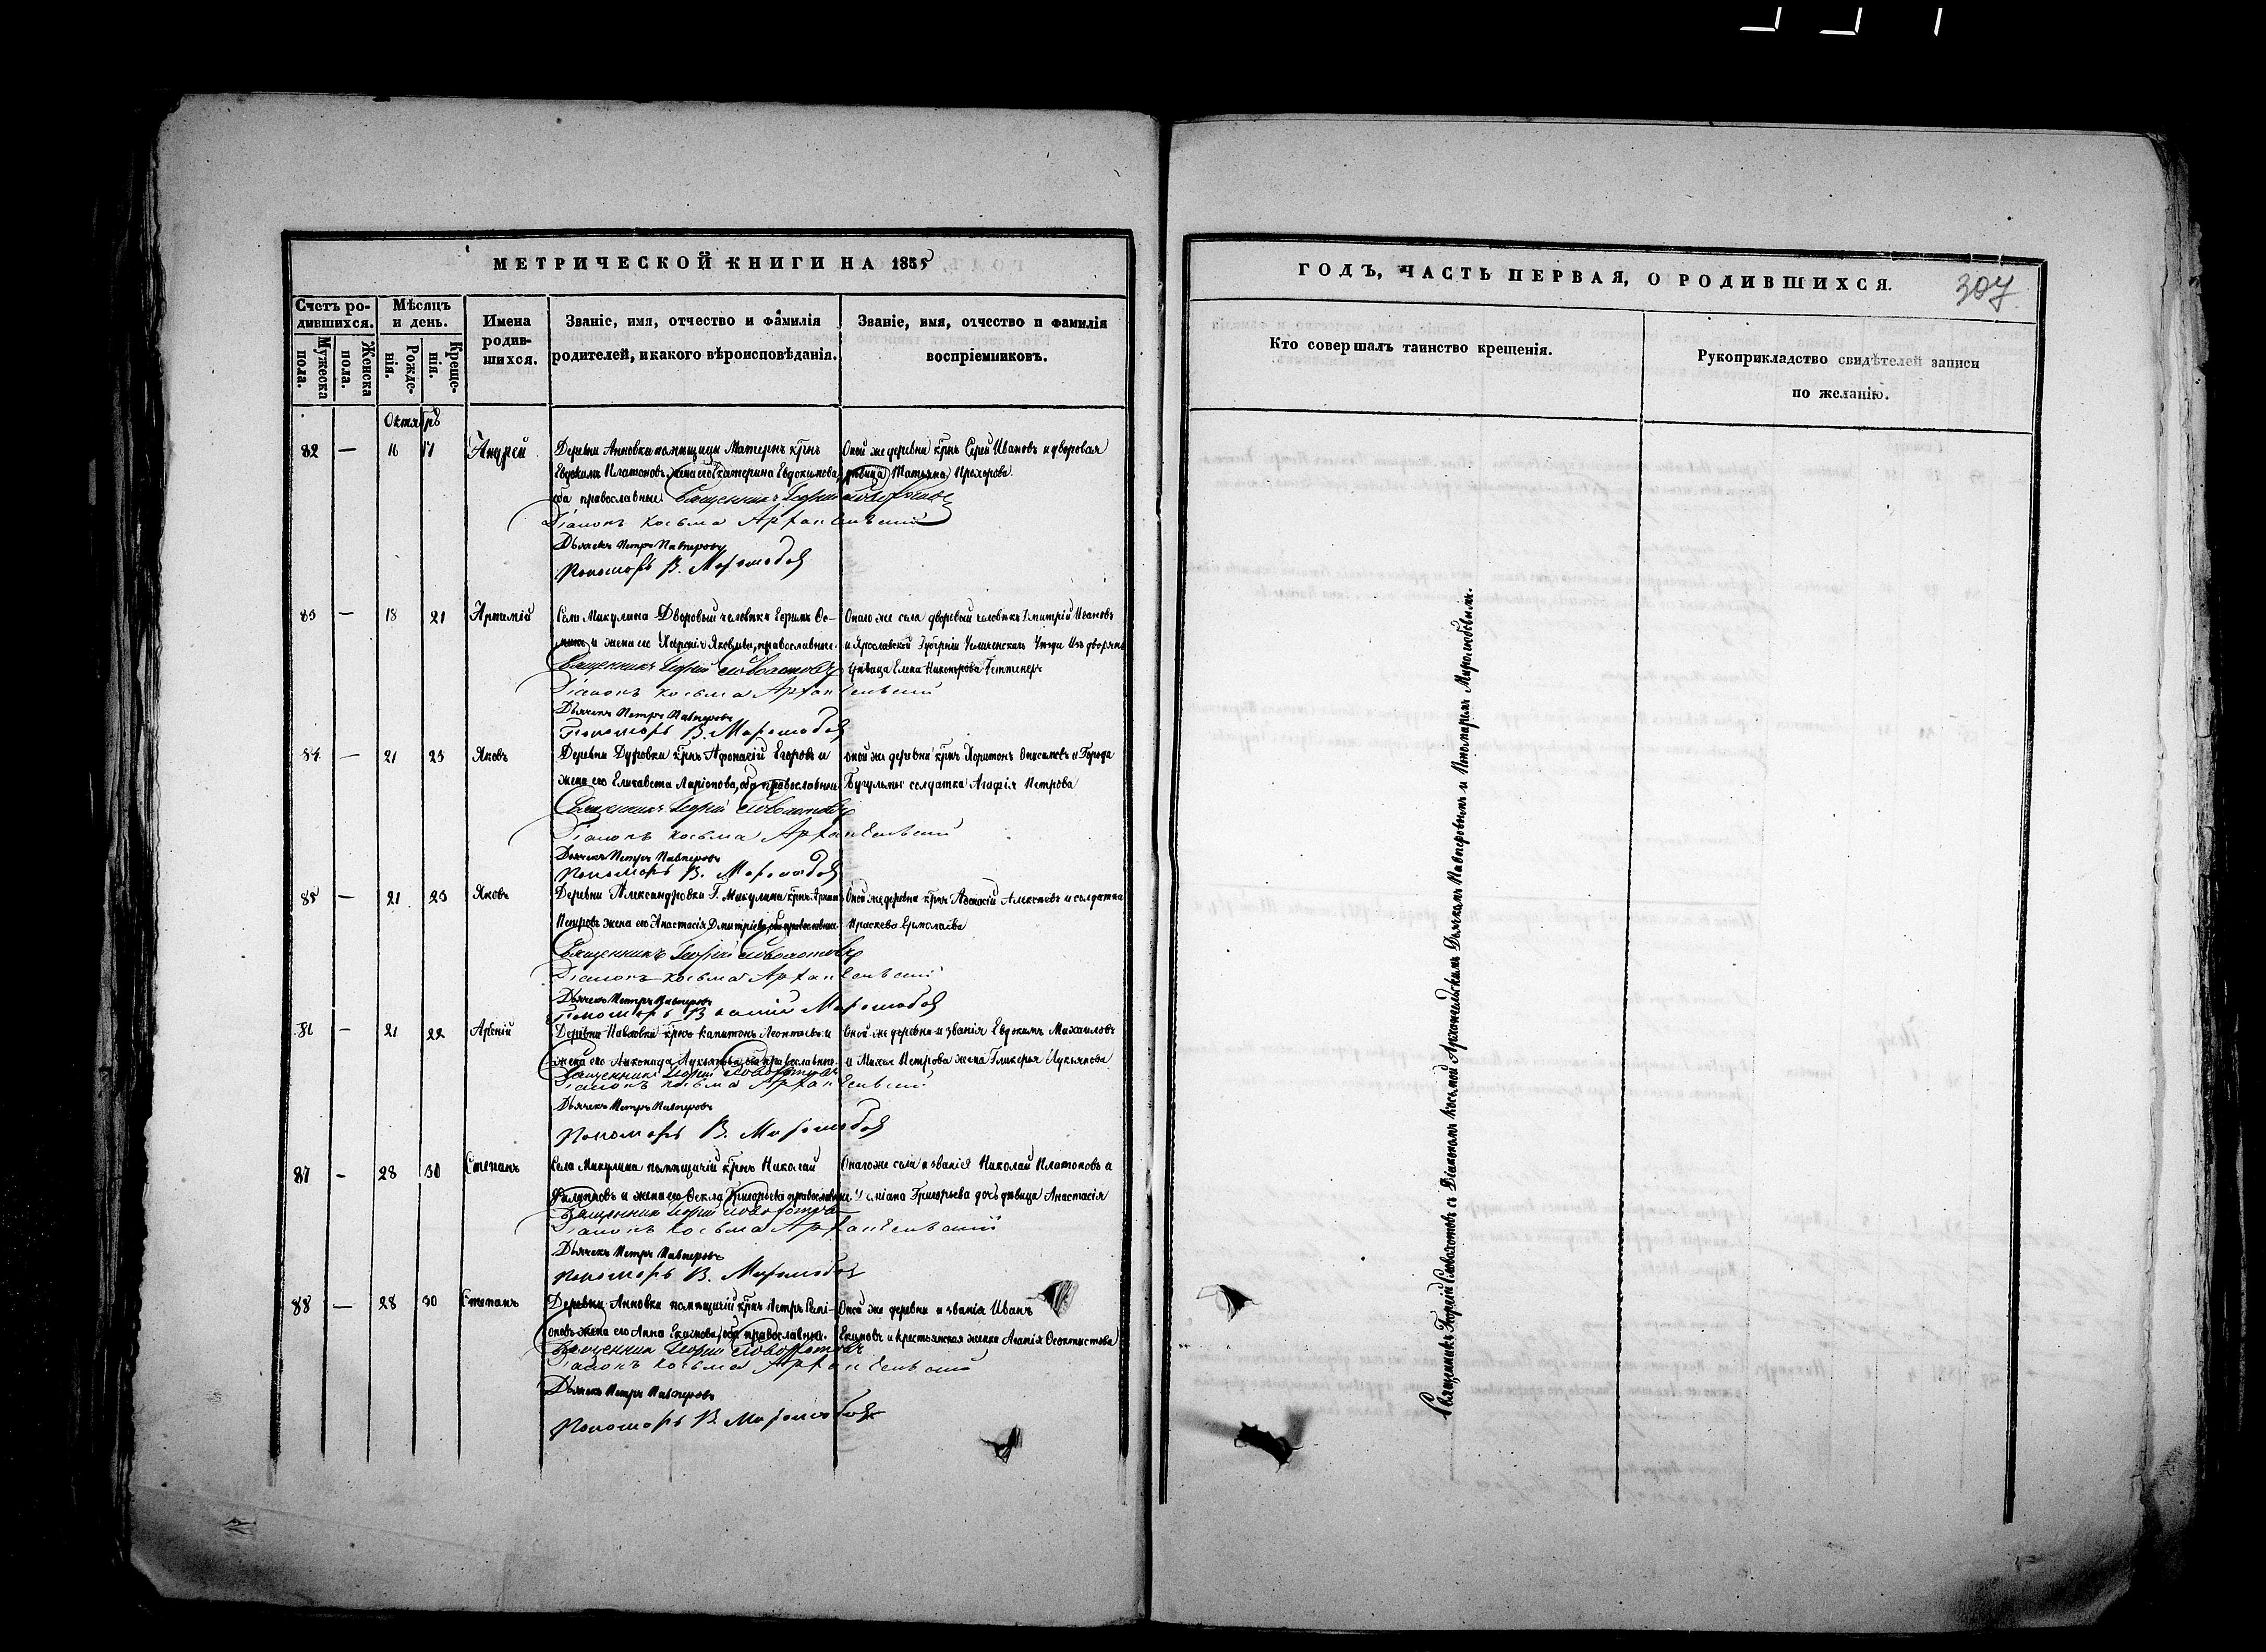 МЕТРИЧЕСКОЙ КНИГИ НА 1855
Счетъ ро-
дившихся.
Мужеска пола.
Женска пола.
Мѣсяцъ
и день.
Рожде-
нія.
Креще-
нія.
Имена
родив-
шихся.
Званіе, имя, отчество и фамилія
родителей, и какого вѣроисповѣданія.
Званіе, имя, отчество и фамилія
воспріемниковъ.
Октябрь
82 — 16 17 Андрей
Деревни Анновки помѣщицы Матернъ крнъ
Евдокимъ Платоновъ, жена его Екатерина Евдокимова,
оба православные
Священникъ Георгій Словохотовъ
Діаконъ Косьма Архангельскій
Дьячекъ Петръ Павперовъ
Пономарь В. Миролюбовъ
Оной же деревни крнъ Сергй Ивановъ и дворовая
дѣвица Татьяна Прохорова
83 — 18 21 Артемій
Села Микулина Дворовый человѣкъ Ефимъ
и жена его Яковлева, православные
Священникъ Георгій Словохотовъ
Діаконъ Косьма Архангельскій
Дьячекъ Петръ Павперовъ
Пономарь В. Миролюбовъ
Онаго же села дворовый человѣкъ Дмитрій Ивановъ
и Ярославской Губерніи Уѣзда Изъ дворянъ
дѣвица Елена Никонорова
84 — 21 23 Яковъ
Деревни Дуровки крнъ Афонасій Егоровъ и
жена его Елизавета Ларіонова, оба православные
Священникъ Георгій Словохотовъ
Діаконъ Косьма Архангельскій
Дьячекъ Петръ Павперовъ
Пономарь В. Миролюбовъ
оной же деревни крнъ Харитонъ Онисимовъ и Города
Бугульмы солдатка Агафія Петрова
85 — 21 23 Яковъ
Деревни Александровки Г. Микулина крнъ
Петровъ жена его Анастасія Дмитріева, оба православные
Священникъ Георгій Словохотовъ
Діаконъ Косьма Архангельскій
Дьячекъ Петръ Павперовъ
Пономарь Василій Миролюбовъ
Оной же деревни крнъ Афонасій Алексѣевъ и солдатка
Прасковья Ермолаева
86 — 21 22 Арсеній
Деревни Павловки крнъ Капитонъ Леонтьевъ и
жена его Лукьянова, оба православные
Священникъ Георгій Словохотовъ
Діаконъ Косьма Архангельскій
Дьячекъ Петръ Павперовъ
Пономарь В. Миролюбовъ
Оной же деревни и званія Евдокимъ Михаиловъ
и Петрова жена Гликерья Лукьянова
87 — 28 30 Степанъ
Села Микулина помѣщичій крнъ Николай
Филипповъ и жена его Ѳекла Григорьева православные
Священникъ Георгій Словохотовъ
Діаконъ Косьма Архангельскій
Дьячекъ Петръ Павперовъ
Пономарь В. Миролюбовъ
Онаго же села и званія Николай Платоновъ и
Григорьева дочь дѣвица Анастасія
88 — 28 30 Степанъ
Деревни Анновки помѣщичій крнъ Петръ
жена его Анна Екимова, оба православные.
Священникъ Георгій Словохотовъ
Діаконъ Косьма Архангельскій
Дьячекъ Петръ Павперовъ
Пономарь В. Миролюбовъ
Оной же деревни и званія Иванъ
Екимовъ и крестьянская женка Агапія Ѳеоктистова
ГОДЪ, ЧАСТЬ ПЕРВАЯ, О РОДИВШИХСЯ.
307
Кто совершалъ таинство крещенія.
Рукоприкладство свидѣтелей записи
по желанію.
Священникъ Георгій Словохотовъ съ Діакономъ Косьмой Архангельскимъ Дьячкомъ Павперовымъ и Пономаремъ Миролюбовымъ.